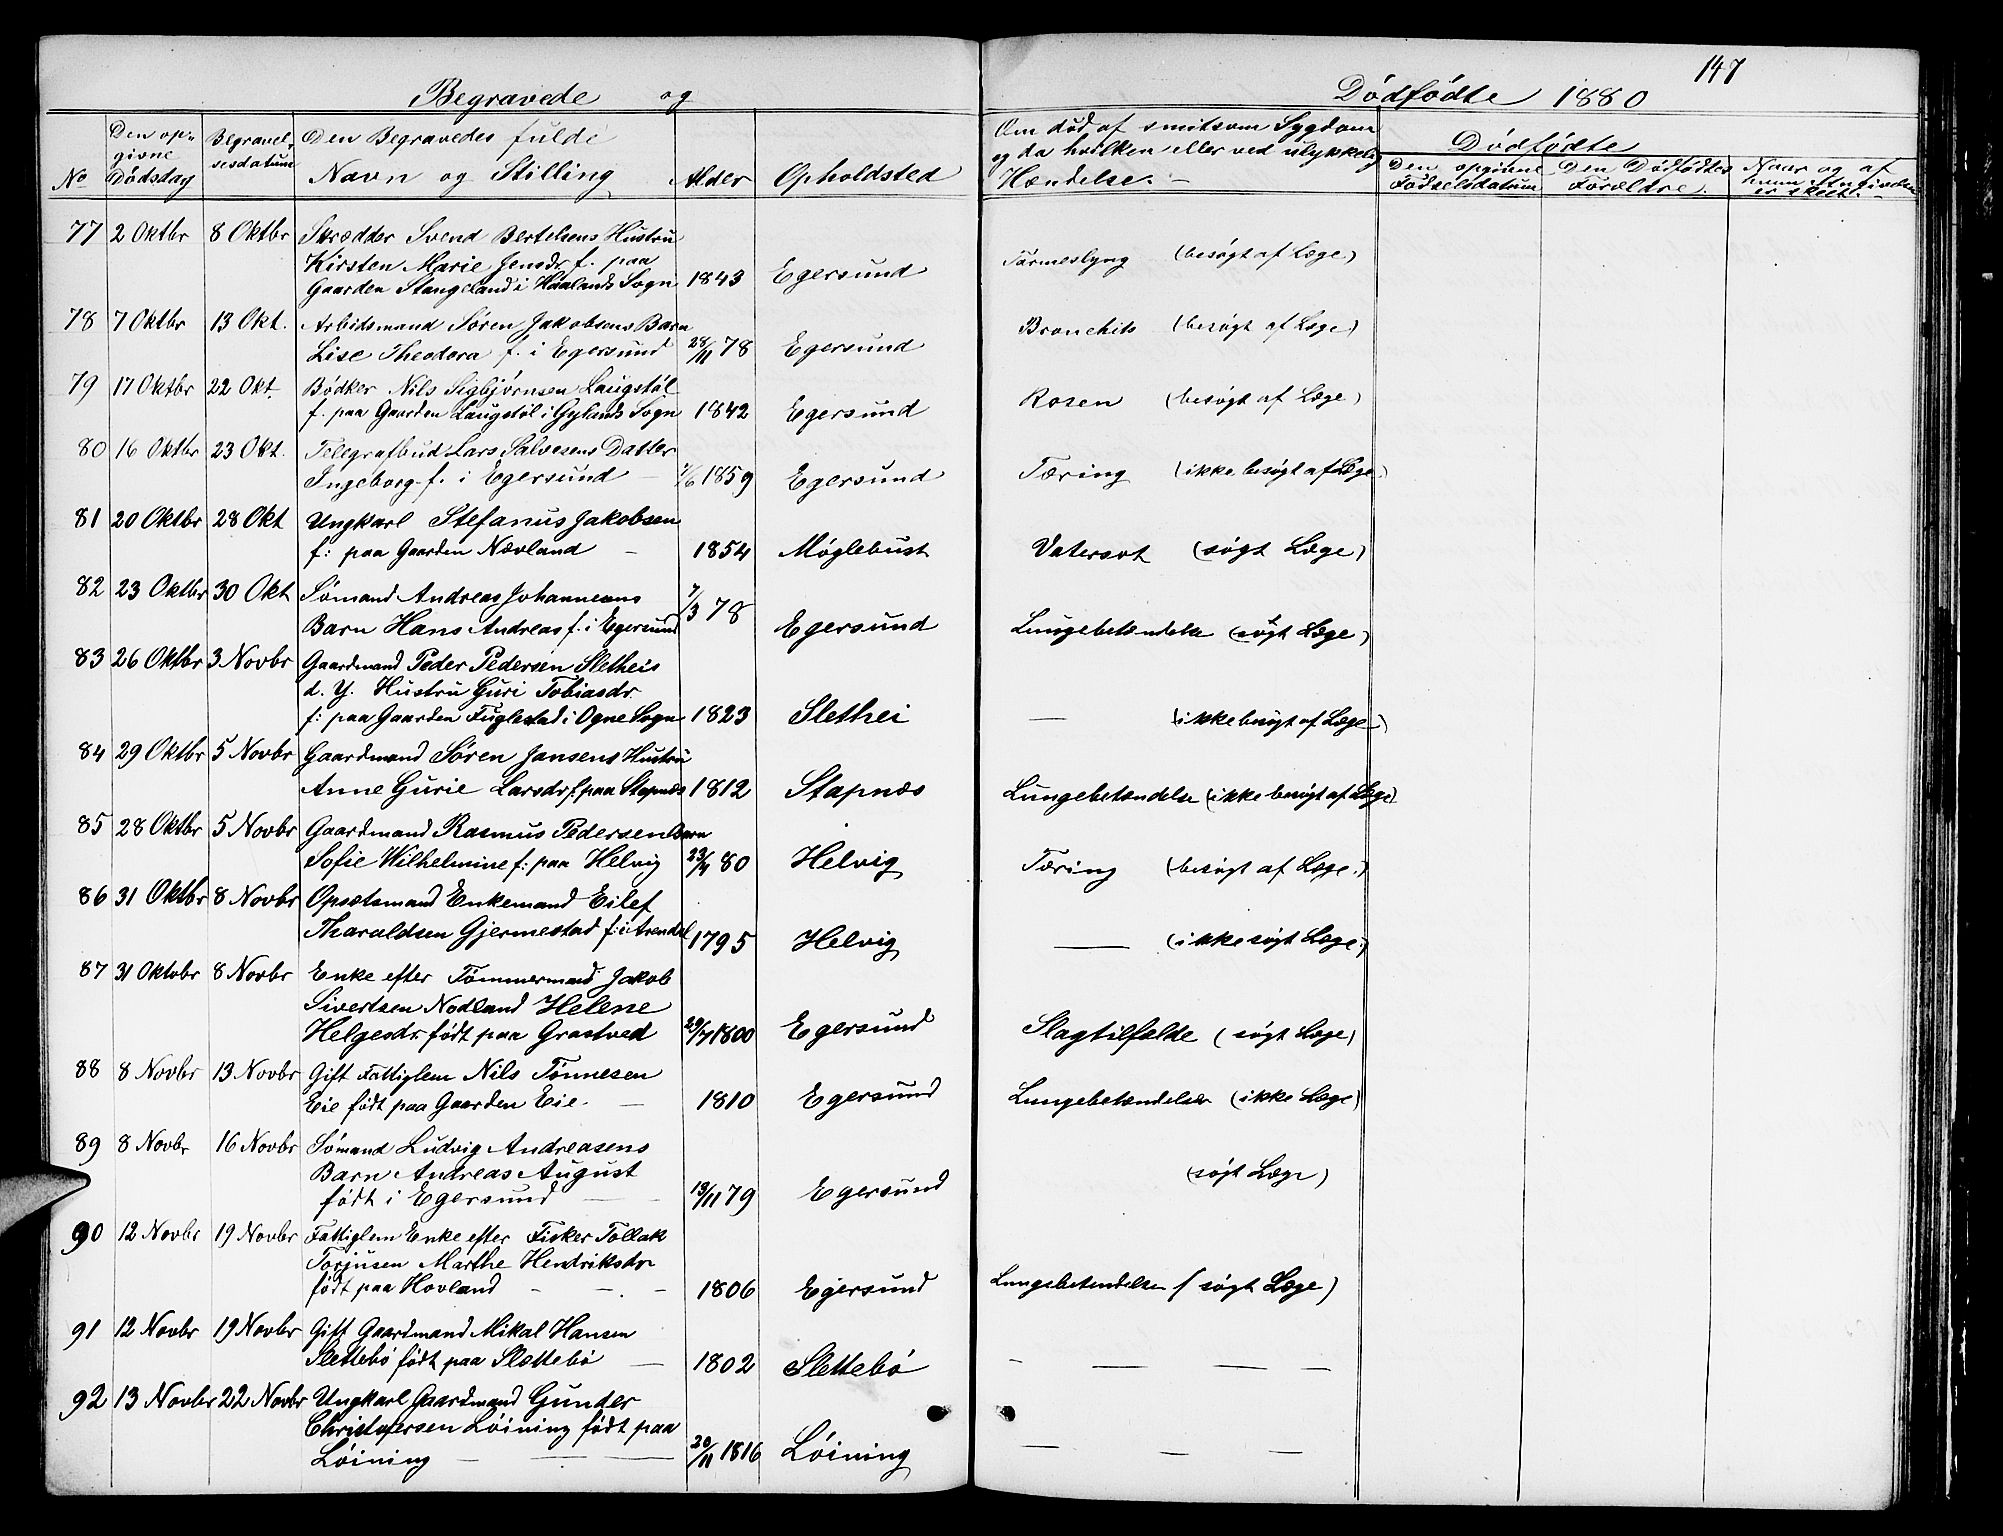 147
Begravede og Dødfødte 1880
No
Den opgivne Dødsdag
Begravelsesdatum
Den Begravedes fulde
Navn og Stilling
Alder
Opholdsted
Om død af smitsom Sygdom
og da hvilken eller ved ulykkelig
Hændelse.
Dødfødte
Den opgivne Fødselsdatum
Den Dødfødtes Forældre.
Naar og af hvem Angivelsen er skeet.
77 2 Oktbr 8 Oktbr Strædder Svend Bertelsens Hustru
Kirsten Marie Jensdr. f. paa
Gaarden Stangeland i Haalands Sogn 1843 Egersund Tarmeslyng (besøgt af Læge.)
78 7 Oktbr 13 Okt. Arbidsmand Søren Jakobsens Barn
Lise Theodora f. i Egersund 28/11 78 Egersund Bronchits (besøgt af Læge)
79 17 Oktbr 22 Okt. Bødker Nils Sigbjørnsen Laugstøl
f. paa Gaarden Laugstøl i Gylands Sogn 1842 Egersund Rosen (besøgt af Læge)
80 16 Oktbr 23 Okt. Telegrafbud Lars Salvesens Datter
Ingeborg f. i Egersund 1/6 1859 Egersund Tæring (ikke besøgt af Læge.)
81 20 Oktbr 28 Okt Ungkarl Stefanus Jakobsen
f: paa Gaarden Nævland 1854 Møglebust Vatersot (søgt Læge)
82 23 Oktbr 30 Okt Sømand Andreas Johannesens
Barn Hans Andreas f. i Egersund 7/3 78 Egersund Lungebetændelse (søgt Læge)
83 26 Oktbr 3 Novbr Gaardmand Peder Pedersen Sletheis
d. Y. Hustru Guri Tobiasdr.
f: paa Gaarden Fuglestad i Ogne Sogn 1823 Slethei — (ikke besøgt af Læge)
84 29 Oktbr 5 Novbr Gaardmand Søren Jansens Hustru
Anne Gurie Larsdr f. paa Stapnæs 1812 Stapnæs Lungebetændelse (ikke besøgt af Læge)
85 28 Oktbr 5 Novbr Gaardmand Rasmus Pedersen Barn
Sofie Wilhelmine f: paa Helvig 23/4 80 Helvig Tæring (besøgt af Læge.)
86 31 Oktbr 8 Novbr Opsætsmand Enkemand Eilef
Tharaldsen Gjermestad f: i Arendal 1795 Helvig — (ikke søgt Læge)
87 31 Oktobr 8 Novbr Enke efter Tømmermand Jakob
Sivertsen Nodland Helene
Helgesdr. født paa Grastved 29/7 1800 Egersund Slagtilfælde (søgt Læge)
88 8 Novbr 13 Novbr Gift Fattiglem Nils Tønnesen
Eie født paa Gaarden Eie. 1810 Egersund Lungebetændelse (ikke Læge)
89 8 Novbr 16 Novbr Sømand Ludvig Andreasens
Barn Andreas August
født i Egersund 13/11 79 Egersund (søgt Læge)
90 12 Novbr 19 Novbr Fattiglem Enke efter Fisker Tollak
Torjusen Marthe Hendriksdr
født paa Hovland 1806 Egersund Lungebetendelse (søgt Læge)
91 12 Novbr 19 Novbr Gift Gaardmand Mikal Hansen
Slettebø født paa Slættebø 1802 Slettebø — — — —
92 13 Novbr 22 Novbr Ungkarl Gaardmand Gunder
Christofersen Løining født paa
Løining 20/11 1816 Løining — — —